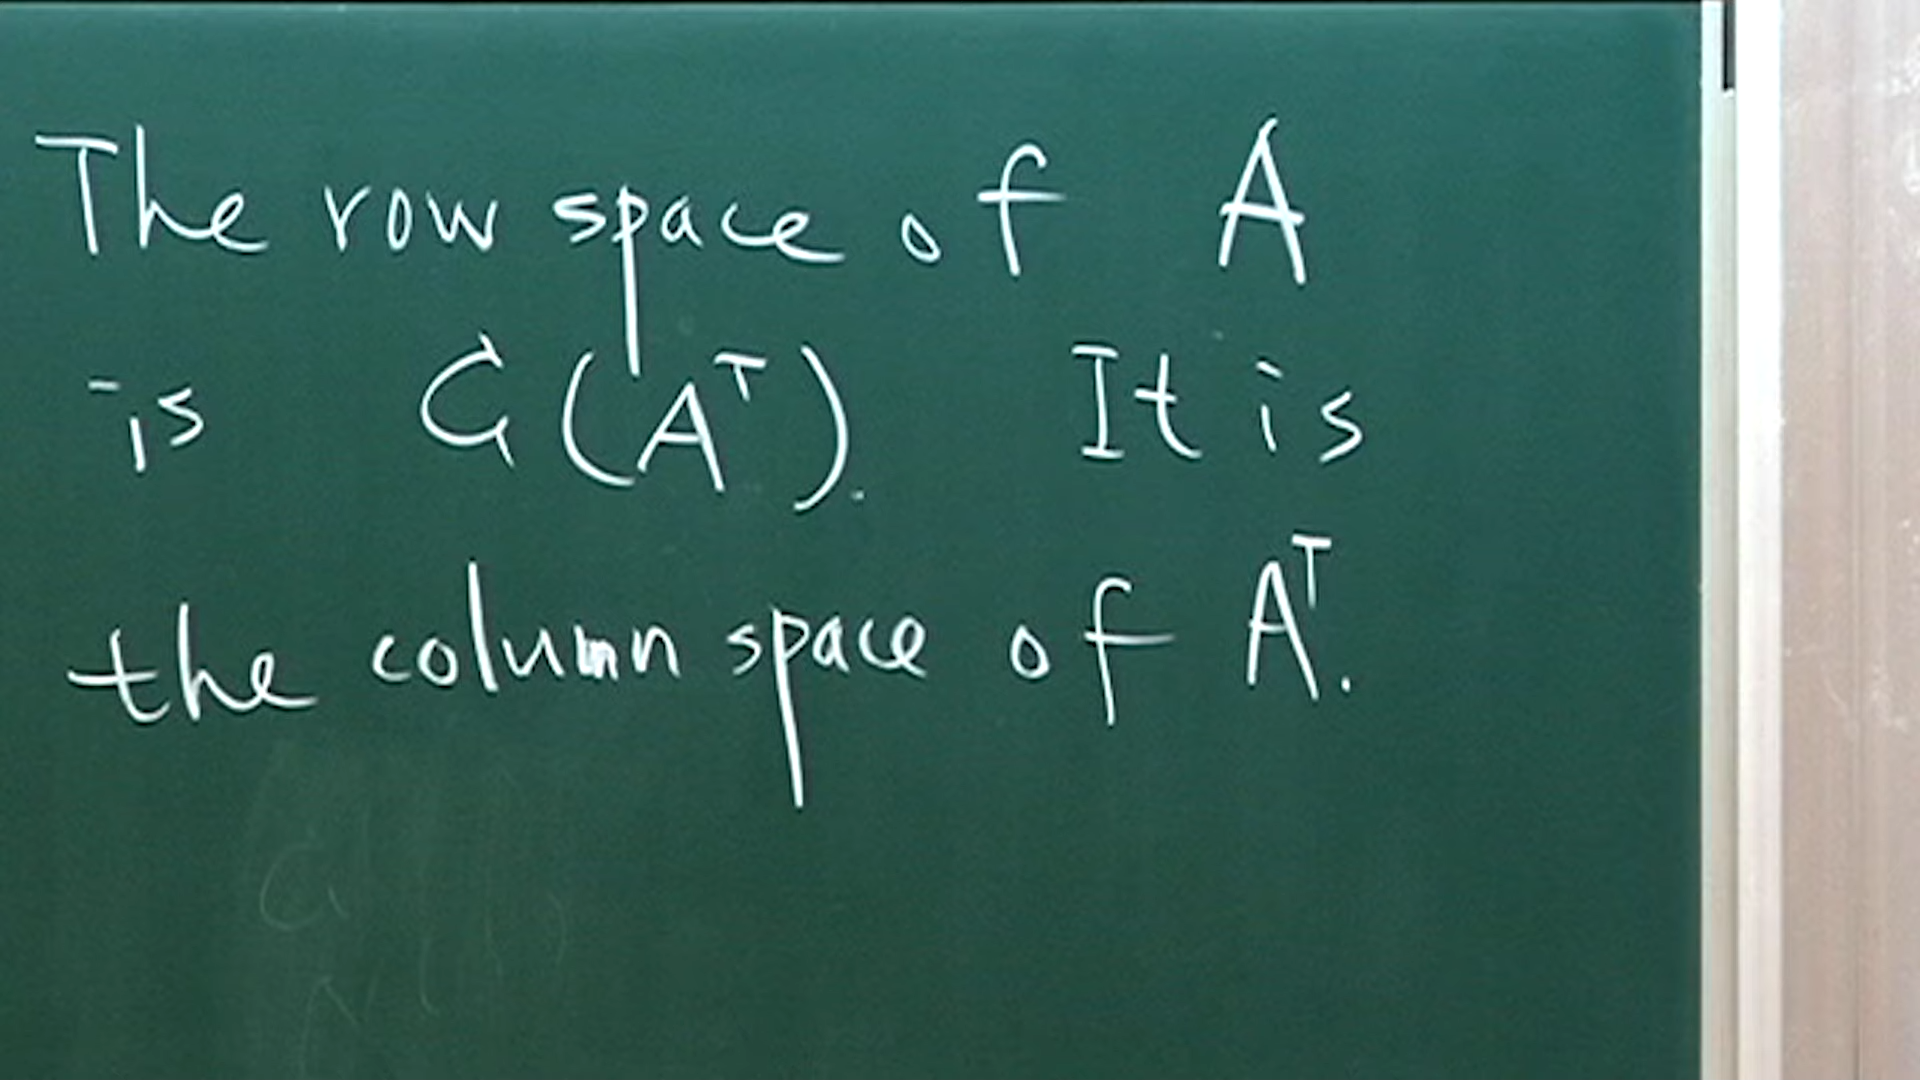 The row space of A
is C(Aᵀ). It is
the column space of Aᵀ.